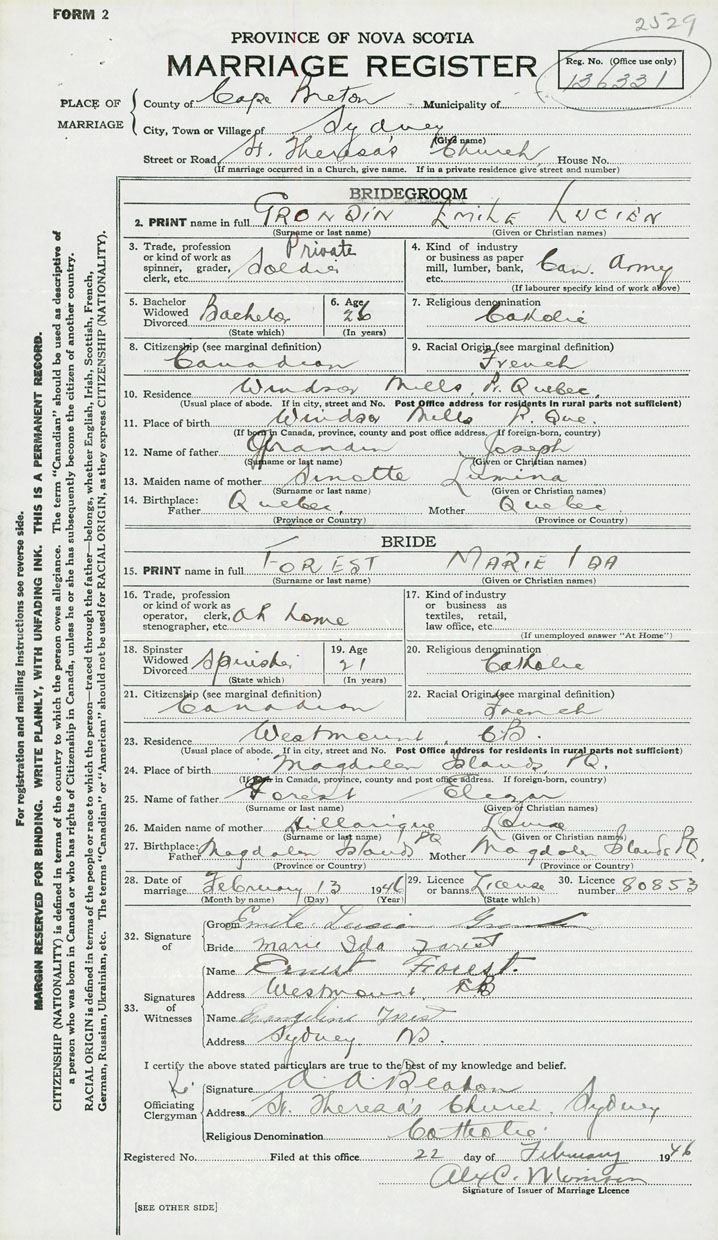 FORM 2
2529
PROVINCE OF NOVA SCOTIA
MARRIAGE REGISTER
Reg. No. (Office use only)
136331
PLACE OF MARRIAGE
County of Cape Breton Municipality of
City, Town or Village of Sydney
(Give name)
Street or Road St. Theresa's Church House No.
(If marriage occurred in a Church, give name. If in a private residence give street and number)
BRIDEGROOM
2. PRINT name in full GRONDIN EMILE LUCIEN
(Surname or last name) (Given or Christian names)
3. Trade, profession or kind of work as spinner, grader, clerk, etc. Private Soldier
4. Kind of industry or business as paper mill, lumber, bank, etc. Can. Army
(If labourer specify kind of work above)
5. Bachelor Widowed Divorced Bachelor
(State which)
6. Age 26
(In years)
7. Religious denomination Catholic
8. Citizenship (see marginal definition) Canadian
9. Racial Origin (see marginal definition) French
10. Residence Windsor Mills, P. Quebec
(Usual place of abode. If in city, street and No. Post Office address for residents in rural parts not sufficient)
11. Place of birth Windsor Mills P. Que.
(If born in Canada, province, county and post office address. If foreign-born, country)
12. Name of father Grondin Joseph
(Surname or last name) (Given or Christian names)
13. Maiden name of mother Lumina
(Surname or last name) (Given or Christian names)
14. Birthplace: Father Quebec, Mother Quebec
(Province or Country) (Province or Country)
BRIDE
15. PRINT name in full FOREST MARIE IDA
(Surname or last name) (Given or Christian names)
16. Trade, profession or kind of work as operator, clerk, stenographer, etc. at home
17. Kind of industry or business as textiles, retail, law office, etc.
(If unemployed answer "At Home")
18. Spinster Widowed Divorced Spinster
(State which)
19. Age 21
(In years)
20. Religious denomination Catholic
21. Citizenship (see marginal definition) Canadian
22. Racial Origin (see marginal definition) French
23. Residence Westmount, C.B.
(Usual place of abode. If in city, street and No. Post Office address for residents in rural parts not sufficient)
24. Place of birth Magdalen Islands, P.Q.
(If born in Canada, province, county and post office address. If foreign-born, country)
25. Name of father Forest
(Surname or last name) (Given or Christian names)
26. Maiden name of mother
(Surname or last name) (Given or Christian names)
27. Birthplace: Father Magdalen Islands PQ Mother Magdalen Islands PQ.
(Province or Country) (Province or Country)
28. Date of marriage February 13 1946
(Month by name) (Day) (Year)
29. Licence or banns License
(State which)
30. Licence number 80853
32. Signature of
Groom Emile Lucien Grondin
Bride Marie Ida Forest
33. Signatures of Witnesses
Name Ernest Forest.
Address Westmount CB
Name
Address Sydney
I certify the above stated particulars are true to the best of my knowledge and belief.
Officiating Clergyman
Signature A. A. Beaton
Address St. Theresa's Church, Sydney
Religious Denomination Catholic
Registered No. Filed at this office 22 day of February 1946
Alex C. Morrison
Signature of Issuer of Marriage Licence
[SEE OTHER SIDE]
For registration and mailing instructions see reverse side.
MARGIN RESERVED FOR BINDING. WRITE PLAINLY, WITH UNFADING INK. THIS IS A PERMANENT RECORD.
CITIZENSHIP (NATIONALITY) is defined in terms of the country to which the person owes allegiance. The term "Canadian" should be used as descriptive of
a person who was born in Canada or who has rights of Citizenship in Canada, unless he or she has subsequently become the citizen of another country.
RACIAL ORIGIN is defined in terms of the people or race to which the person—traced through the father—belongs, whether English, Irish, Scottish, French,
German, Russian, Ukrainian, etc. The terms "Canadian" or "American" should not be used for RACIAL ORIGIN, as they express CITIZENSHIP (NATIONALITY).